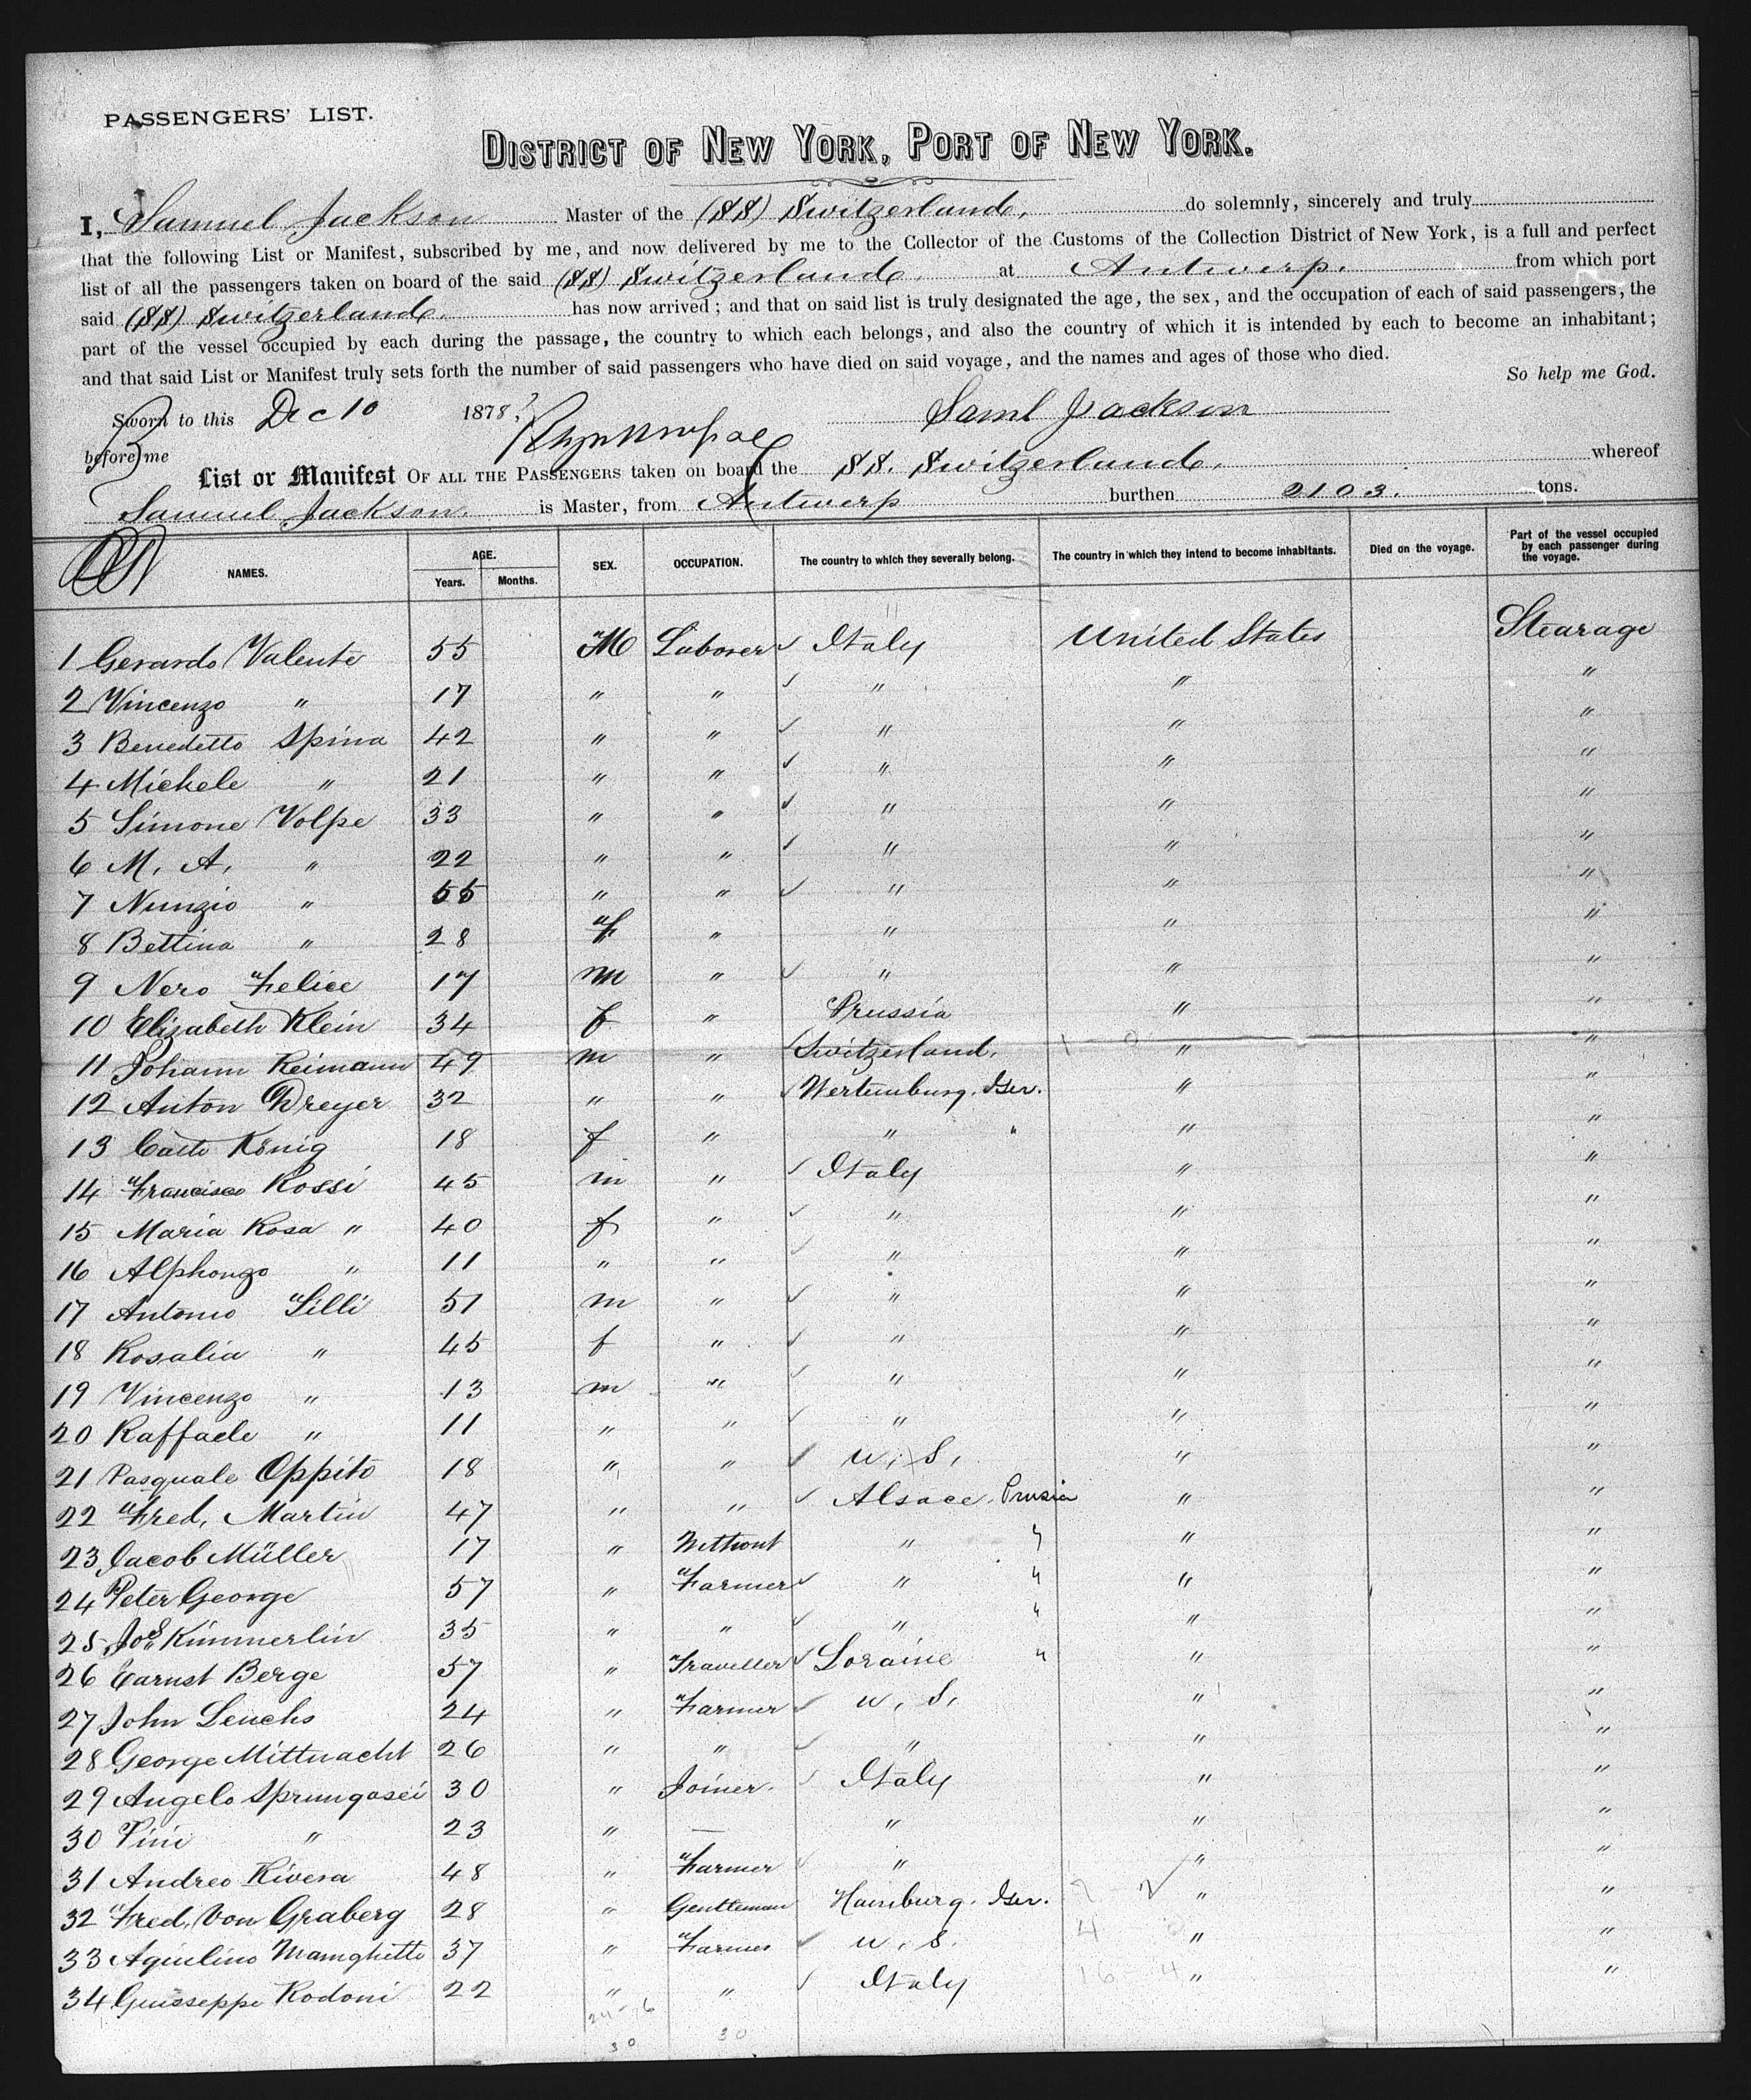 PASSENGERS' LIST.
DISTRICT OF NEW YORK, PORT OF NEW YORK.
I, Samuel Jackson Master of the (SS) Switzerland, do solemnly, sincerely and truly
that the following List or Manifest, subscribed by me, and now delivered by me to the Collector of the Customs of the Collection District of New York, is a full and perfect
list of all the passengers taken on board of the said (SS) Switzerland, at Antwerp. from which port
said (SS) Switzerland. has now arrived; and that on said list is truly designated the age, the sex, and the occupation of each of said passengers, the
part of the vessel occupied by each during the passage, the country to which each belongs, and also the country of which it is intended by each to become an inhabitant;
and that said List or Manifest truly sets forth the number of said passengers who have died on said voyage, and the names and ages of those who died.
So help me God.
Sworn to this Dec 10 1878, Saml Jackson
before me
List or Manifest OF ALL THE PASSENGERS taken on board the SS. Switzerland, whereof
Samuel Jackson. is Master, from Antwerp burthen 2103. tons.
NAMES. AGE. Years. Months. SEX. OCCUPATION. The country to which they severally belong. The country in which they intend to become inhabitants. Died on the voyage. Part of the vessel occupied by each passenger during the voyage.
1 Gerardo Valente 55 M Laborer Italy United States Stearage
2 Vincenzo " 17 " " " " "
3 Benedetto Spina 42 " " " " "
4 Michele " 21 " " " " "
5 Simone Volpe 33 " " " " "
6 M. A. " 22 " " " " "
7 Nunzio " 55 " " " " "
8 Bettina " 28 F " " " "
9 Nero Felice 17 m " " " "
10 Elizabeth Klein 34 f " Prussia " "
11 Johann Reimann 49 m " Switzerland, " "
12 Anton Dreyer 32 " " Wertemburg. Ger. " "
13 König 18 f " " " " "
14 Francisco Rossi 45 m " Italy " "
15 Maria Rosa " 40 f " " " "
16 Alphonzo " 11 " " " " "
17 Antonio Lilli 51 m " " " "
18 Rosalia " 45 f " " " "
19 Vincenzo " 13 m " " " "
20 Raffaele " 11 " " " " "
21 Pasquale Oppito 18 " " U. S. " "
22 Fred. Martin 47 " " Alsace. Prusia " "
23 Jacob Müller 17 " Without " " " "
24 Peter George 57 " Farmer " " " "
25 Jos. Kimmerlin 35 " " " " " "
26 Earnst Berge 57 " Traveller Loraine " " "
27 John Leuchs 24 " Farmer U. S. " "
28 George Mittnacht 26 " " " " "
29 Angelo Sprungasei 30 " Joiner. Italy " "
30 Pini " 23 " — " " "
31 Andreo Rivera 48 " Farmer " " "
32 Fred. Von Graberg 28 " Gentleman Hamburg. Ger. " "
33 Aquilino 37 " Farmer U. S. " "
34 Guisseppe Rodoni 22 " " Italy " "
30 30